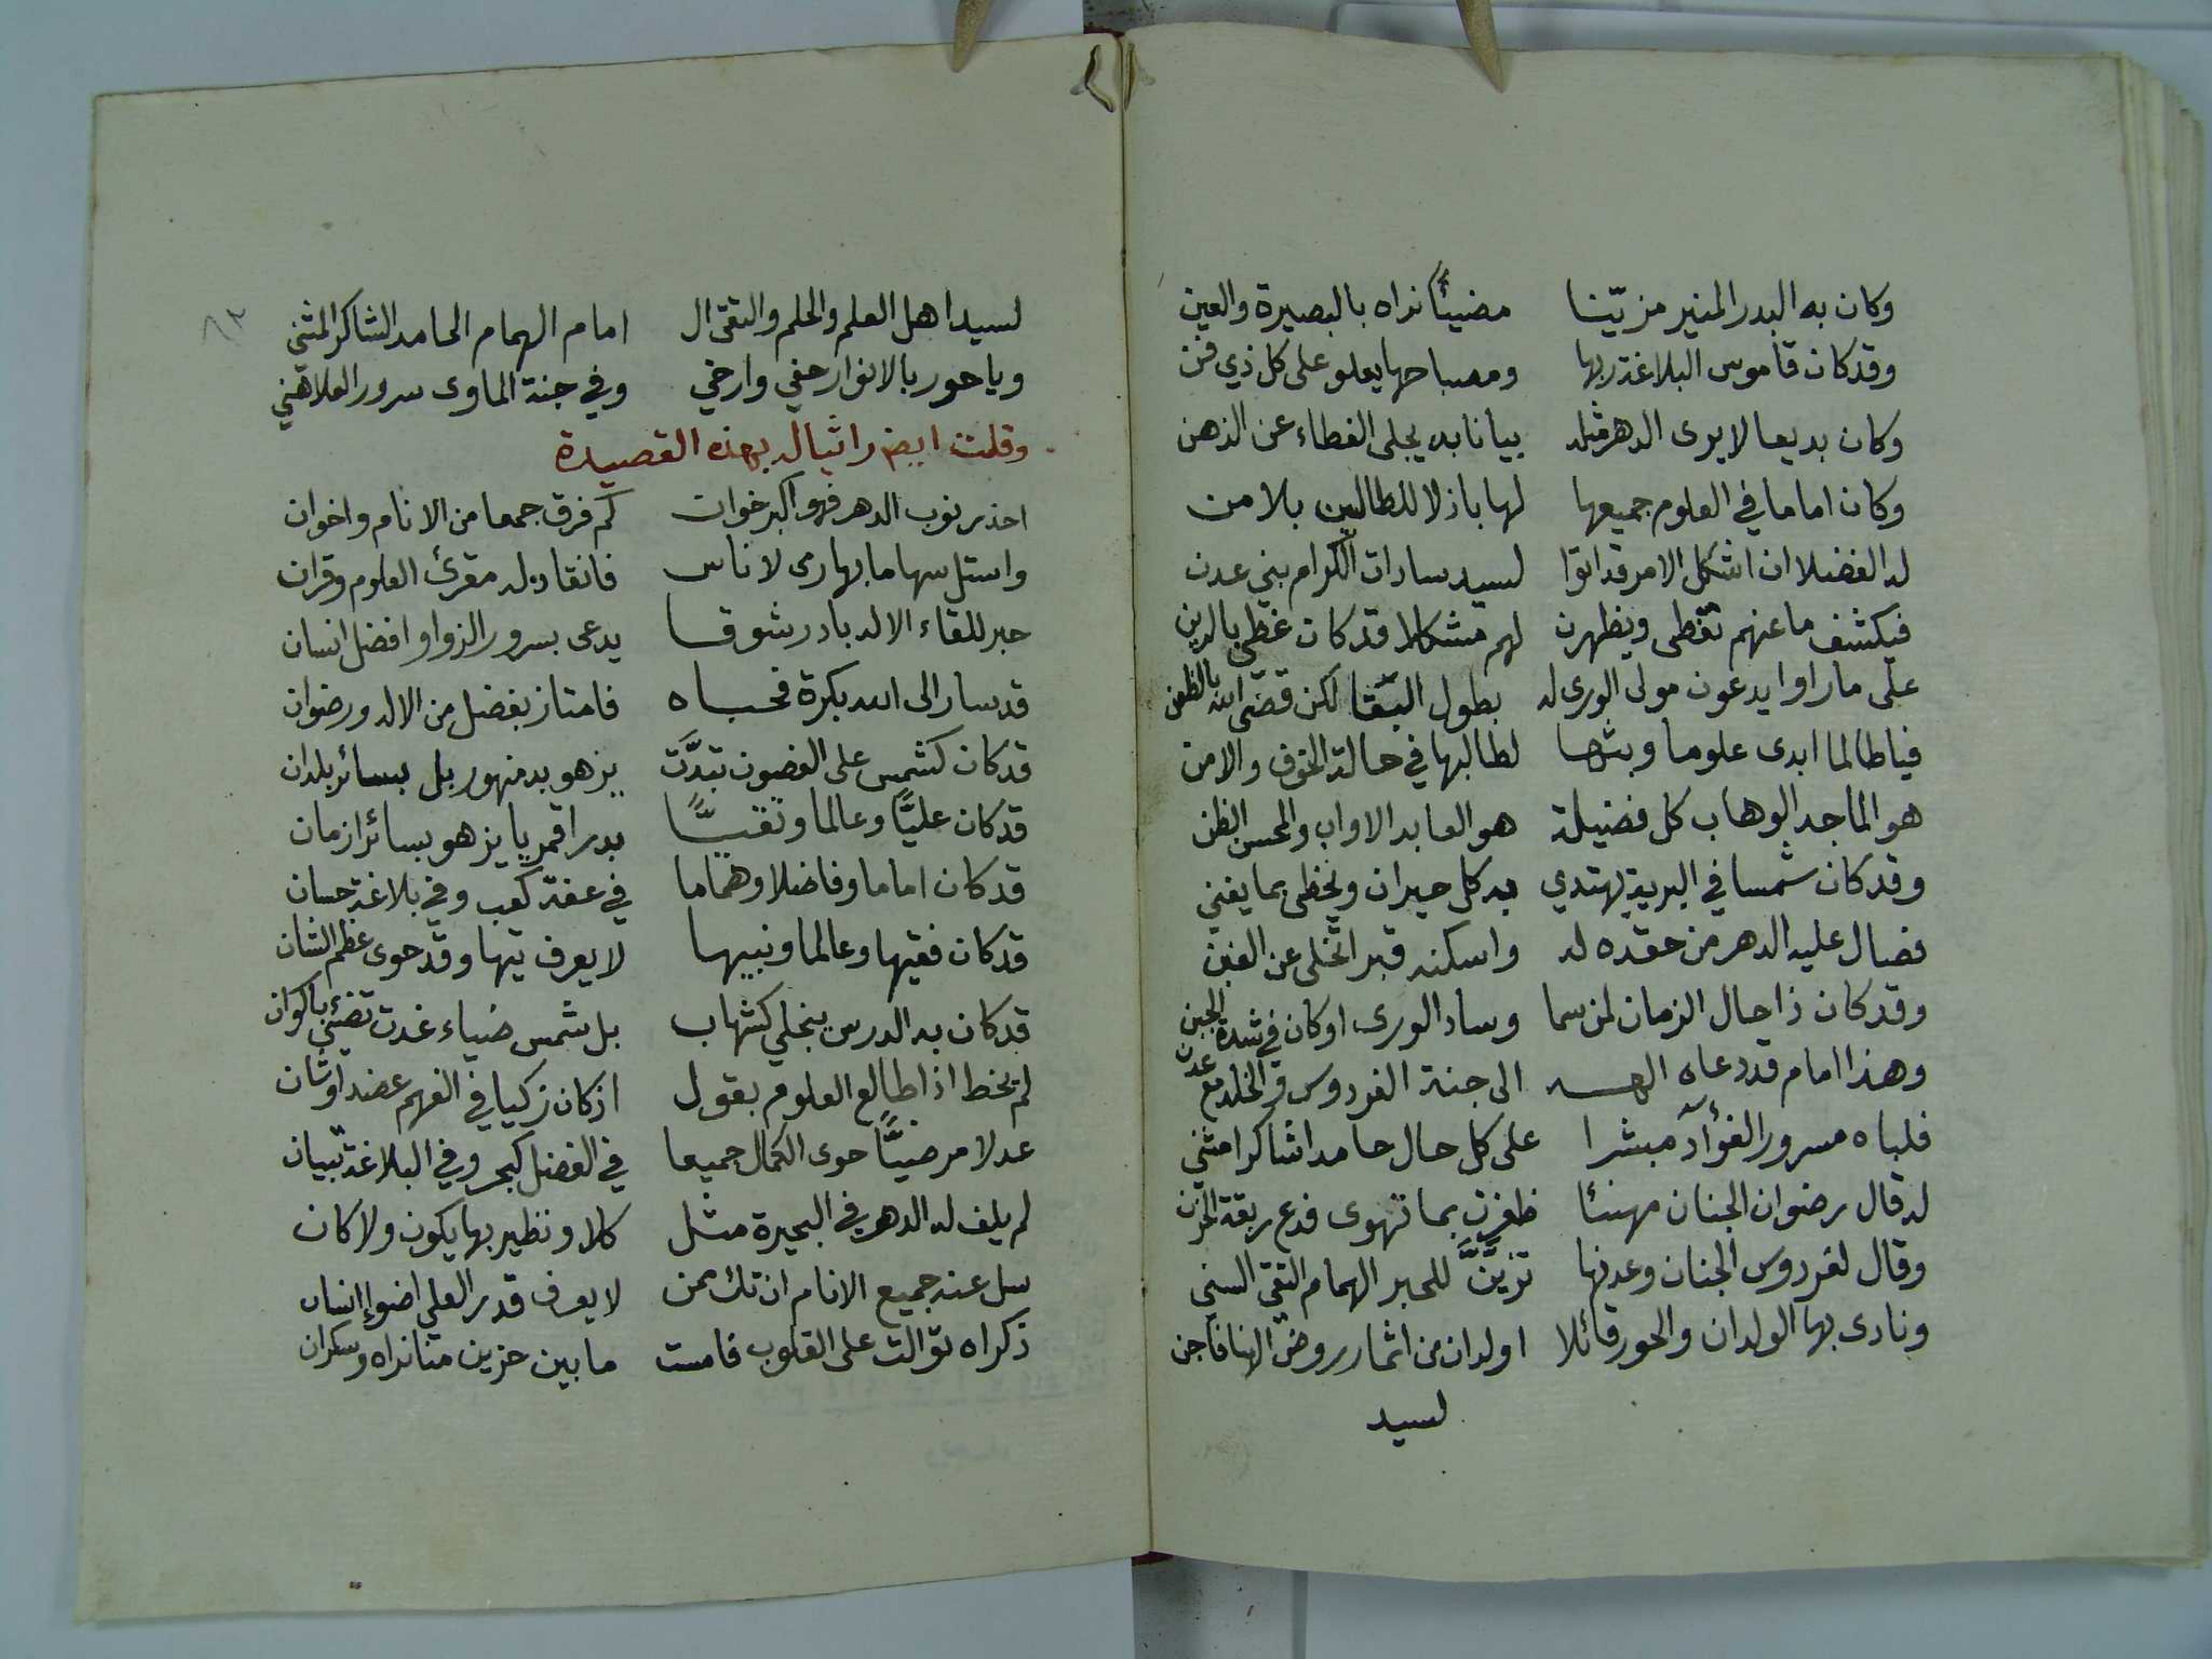 وكان به البدر المنير مزيّنا مضيئًا نراه بالبصيرة والعين
وقد كان قاموس البلاغة ربها ومصباحها يعلو على كل ذي فن
وكان بديعا لا يرى الدهر مثله بيانا به يجلى الغطاء عن الذهن
وكان اماما في العلوم جميعها لها باذلا للطالبين بلا من
له الفضلا ان اشكل الامر قد اتوا لسيد سادات الكرام بني عدن
فيكشف ما عنهم تغطى ويظهرن لهم مشكلا قد كان غطي بالرين
على ما راوا يدعون مولى الورى له بطول البقا لكن قضى الله بالظعن
فيا طالما ابدى علوما وبثها لطالبها في حالة الخوف والامن
هو الماجد الوهاب كل فضيلة هو العابد الاواب والمحسن الظن
وقد كان شمسا في البرية يهتدي به كل حيران ويحظى بما يغني
فصال عليه الدهر من حقده له واسكنه قبرا تخلى عن الغبن
وقد كان ذا حال الزمان لمن سما وساد الورى او كان في شدة الجبن
وهذا امام قد دعاه الهه الى جنة الفردوس والخلد مع عدن
فلباه مسرور الفؤآد مبشرا على كل حال حامدا شاكرا مثني
له قال رضوان الجنان مهنئا ظفرت بما تهوى فدع ربقة الحزن
وقال لفردوس الجنان وعدنها تزيَّنَّ للحبر الهمام التقي السني
ونادى بها الولدان والحور قائلا اولدان من اثمار روض الهنا فاجن
لسيد
لسيد اهل العلم والحلم والتقى ال امام الهمام الحامد الشاكر المثني
ويا حور بالانوار حفي وارخي وفي جنة الماوى سرور العلا هني
وقلت ايضا راثيا له بهذه القصيدة
احذر نوب الدهر فهو اكبر خوان كم فرق جمعا من الانام واخوان
واستل سهاما بها رمى لاناس فانقاد له مقرئ العلوم وقران
حبر للقاء الاله بادر شوقا يدعى بسرور الزواو افضل انسان
قد سار الى الله بكرة فحباه فامتاز بفضل من الاله ورضوان
قد كان كشمس على الغصون تبدَّت يزهو بدمنهور بل بسائر بلدان
قد كان عليًّا وعالما وتقيًّا بدرا قمريا يزهو بسائر ازمان
قد كان اماما وفاضلا وهماما في عفة كعب وفي بلاغة حسان
قد كان فقيها وعالما ونبيها لا يعرف تيها وقد حوى عظم الشان
قد كان به الدرس ينجلي كشهاب بل شمس ضياء غدت تضيئ باكوان
لم يخط اذا طالع العلوم بقول اذ كان زكيا في الفهم عضد اوشان
عدلا مرضيًّا حوى الكمال جميعا في الفضل كبحر وفي البلاغة تبيان
لم يلف له الدهر في البحيرة مثل كلا ونظير بها يكون ولا كان
سل عنه جميع الانام ان تك ممن لا يعرف قدر العلي اضوإ انسان
ذكراه توالت على القلوب فامست ما بين حزين منا نراه وسكران